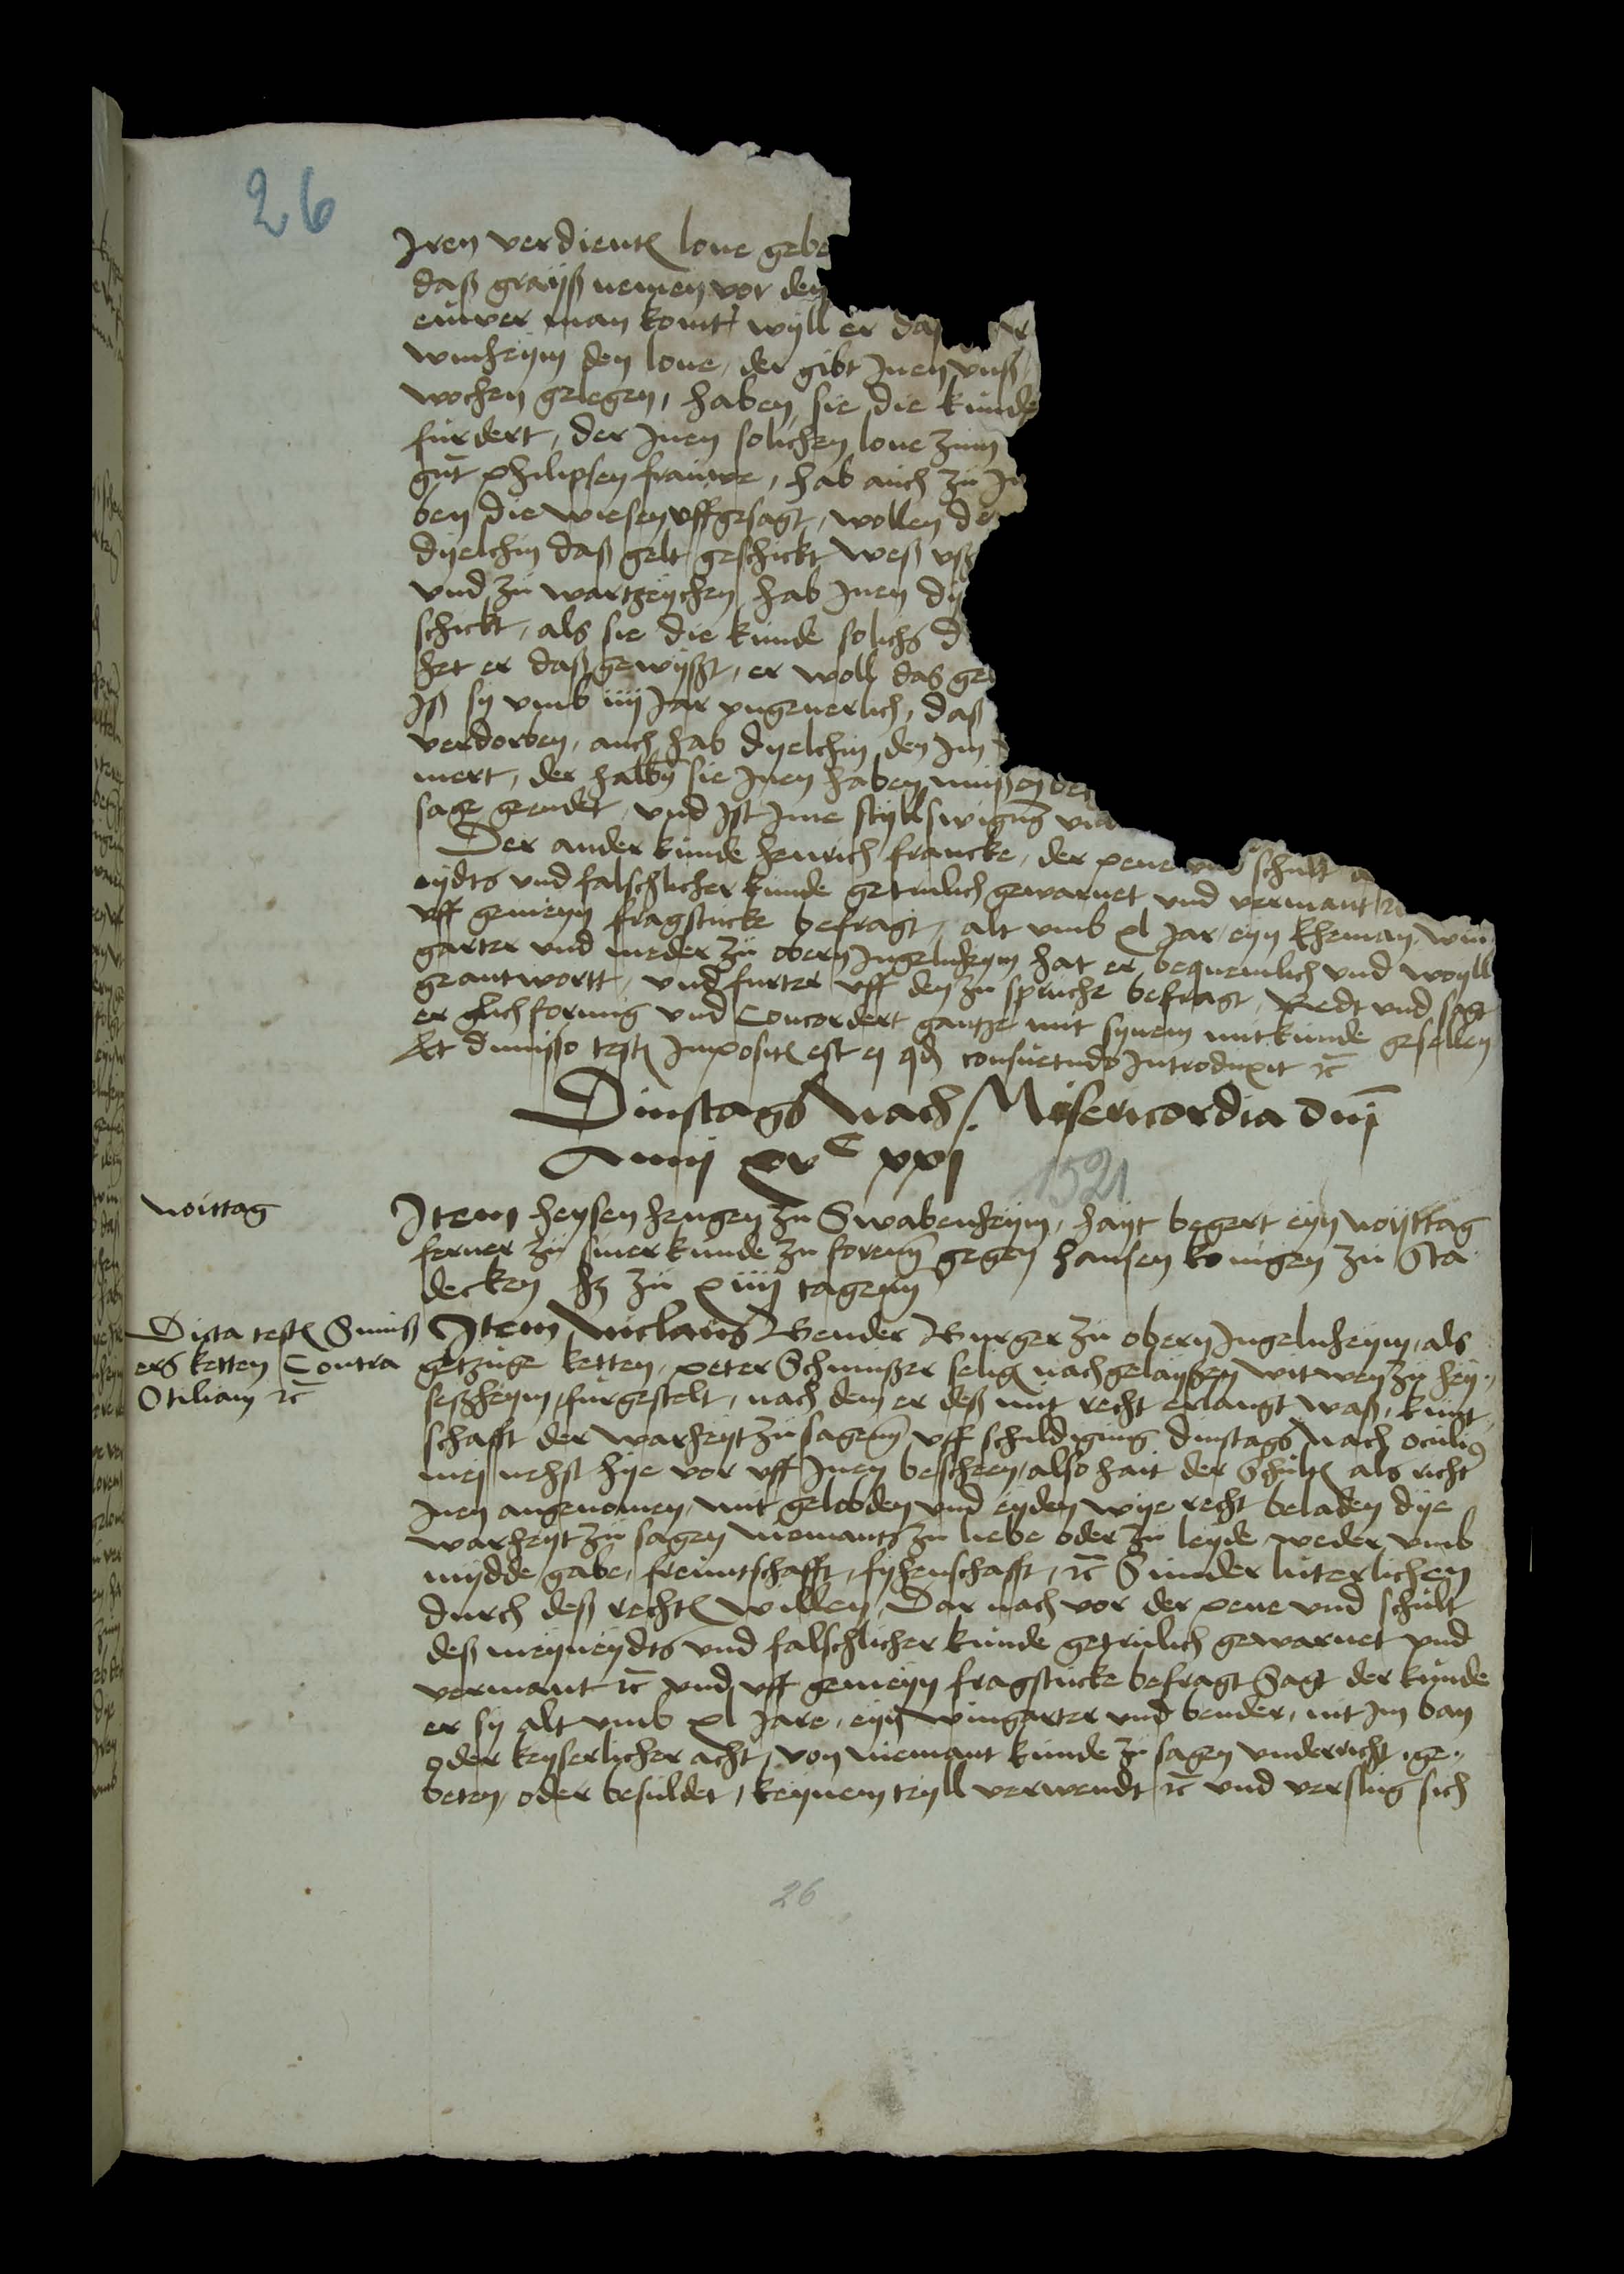 26
Iren verdient lone gebe
daß grayß nemen vor den
einver man komt wyll er das
winheym den lone, der gibt Inen
wochen gelegen, haben sie die kunde
furdert, der Inen solichen lone zum
gut philipsen frauwe, hab auch zu In
ben die wiesen uffgesagt, wollen de
dyelchin daß gelt geschickt weß uß
und zu wartzeychen hab Inen dy
schickt, als sie die kunde solichs d
het er daß gewyßt, er woll das ge
Iß sy umb iiij Jar ungeverlich, daß
verdorben, auch hab dyelchin den Im
mert, der halbn sie Inen haben mußen
sage geendet, und Ist Ime styllswigung
Der ander kunde henrich francke, der pene und schult
eydts und falschlicher kunde getrulich gewarnet und vermant rc
uff gemeyn fragstucke befragt, alt umb xl Jar, eyn Eheman, win
garter und meder zu obern Ingelnheym hat er bequemlich und woyll
geantwortt, und furter uff den zu spruche befragt, Redt und sagt
er glich formig und Concordert gantze mit synem mitkunde gesellen
Et dimisso teste Imposite est ei qd consuetudo Introduxit rc
Dinstags Nach Misericordia dni
Anni xvc xxj
1521
Noittag
Item heysen hengen zu Swabenheym, hayt begert eyn noyttag
ferner zu siner kunde zu foren gegen hansen konigen zu Sta
decken hz zu xiiij tagenn
Dicta teste Smiß
ers ketten Contra
Otiliam rc
Item Niclaus Bender Burger zu obern Ingelnheym, als
getzuge ketten, peter Schmißer selig nachgelaißen witwen zu hey
seßheym, furgestelt, nach dem er deß mit recht erlangt waß, kunt
schafft der warheyt zu sagenn uff schuldigung dinstags Nach oculi
mei nehst hye vor uff Inen bescheen, also hait der Schults als richt
Inen angenomen, mit globden und eyden wye recht beladen dye
warheyt zu sagen niemants zu liebe oder zu leyde weder umb
mydde gabe, freuntschafft, fyhenschafft, rc Sunder luterlichen
durch deß rechts willen, Dar nach vor der pene und schult
deß meyneydts und falschlicher kunde getrulich gewarnet und
vermant rc und uff gemeyn fragstucke befragt Sagt der kunde
er sy alt umb xl Jare, eyn wingarter und bender, nit Im ban
oder keyserlicher acht, von niemant kunde zu sagen underricht ge
beten, oder besuldet, keynem teyll verwendt rc und verslug sich
26